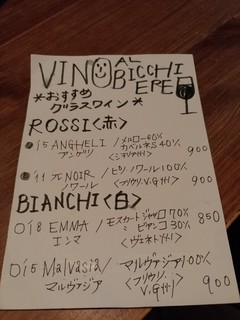 VINO AL BICCHIERE
*おすすめ
グラスワイン*
ROSSI<赤>
'15 ANGHELI / メルロー60%
アンゲリ カベルネS 40%
900
'11 NOIR / ピノノワール100%
ノワール <フリウリ.V.G州>
900
BIANCHI<白>
'18 EMMA / モスカートジャッロ70%
エンマ ピアンコ30%
<ヴェネト州>
850
'15 Malvasia / マルヴァジア100%
マルヴァジア <フリウリ.
V.G州>
900